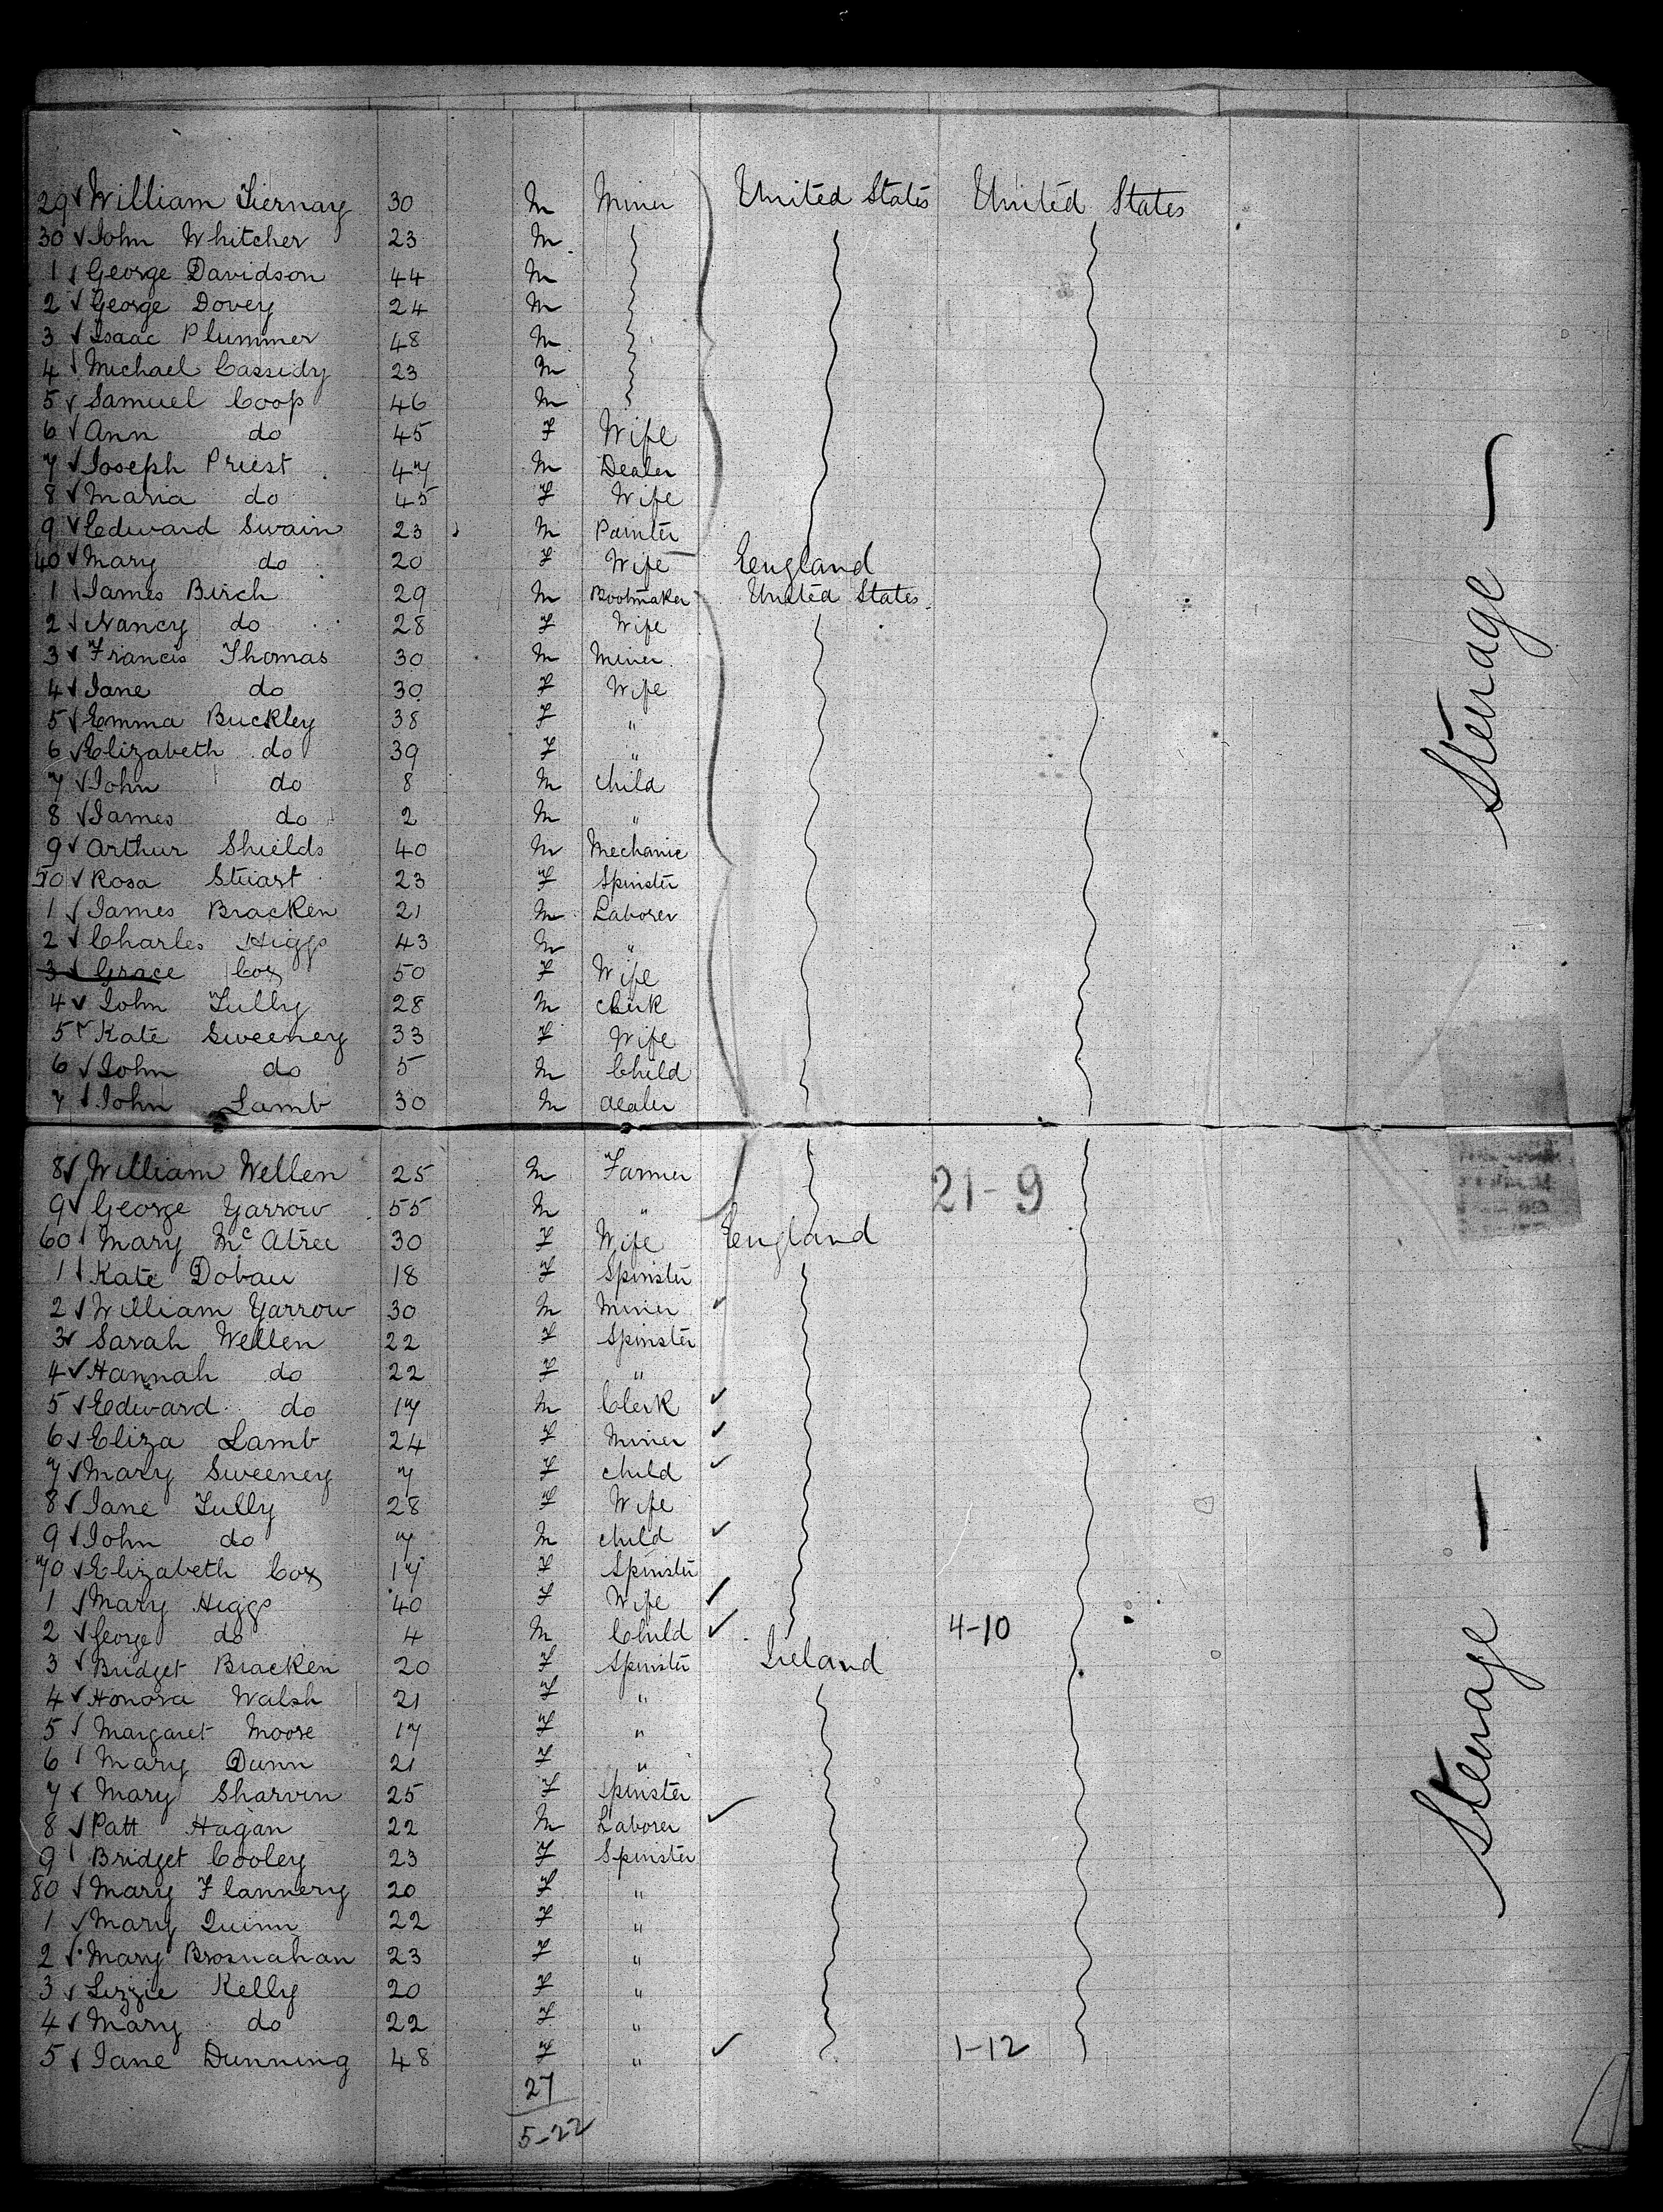 29 William Tiernay 30 M Miner United States United States
30 John Whitcher 23 M
1 George Davidson 44 M
2 George Dovey 24 M
3 Isaac Plummer 48 M
4 Michael Cassidy 23 M
5 Samuel Coop 46 M
6 Ann do 45 F Wife
7 Joseph Priest 47 M Dealer
8 Maria do 45 F Wife
9 Edward Swain 23 M Painter
40 Mary do 20 F Wife England
1 James Birch 29 M Bootmaker United States
2 Nancy do 28 F Wife
3 Francis Thomas 30 M Miner
4 Jane do 30 F Wife
5 Emma Buckley 38 F "
6 Elizabeth do 39 F "
7 John do 8 M child
8 James do 2 M "
9 Arthur Shields 40 M Mechanic
50 Rosa Stuart 23 F Spinster
1 James Bracken 21 M Laborer
2 Charles Higgs 43 M "
3 Grace Cox 50 F Wife
4 John Tully 28 M Clerk
5 Kate Sweeney 33 F Wife
6 John do 5 M Child
7 John Lamb 30 M dealer
Steerage
8 William Wellen 25 M Farmer 21-9
9 George Yarrow 55 M "
60 Mary McAtree 30 F Wife England
1 Kate Doban 18 F Spinster
2 William Yarrow 30 M Miner
3 Sarah Wellen 22 F Spinster
4 Hannah do 22 F "
5 Edward do 17 M Clerk
6 Eliza Lamb 24 F Miner
7 Mary Sweeney 7 F child
8 Jane Tully 28 F Wife
9 John do 7 M child
70 Elizabeth Cox 17 F Spinster
1 Mary Higgs 40 F Wife
2 George do 4 M Child 4-10
3 Bridget Bracken 20 F Spinster Ireland
4 Honora Walsh 21 F "
5 Margaret Moore 17 F "
6 Mary Dunn 21 F "
7 Mary Sharvin 25 F Spinster
8 Patt Hagan 22 M Laborer
9 Bridget Cooley 23 F Spinster
80 Mary Flannery 20 F "
1 Mary Quinn 22 F "
2 Mary Brosnahan 23 F "
3 Lizzie Kelly 20 F "
4 Mary do 22 F "
5 Jane Dunning 48 F " 1-12
Steerage
27
5-22